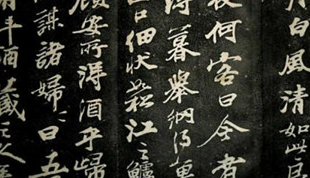 白風清如此良
夜何客曰今者
薄暮舉網得魚
口細狀松江之鱸
顧安所得酒乎歸
謀諸婦曰
斗酒藏之久